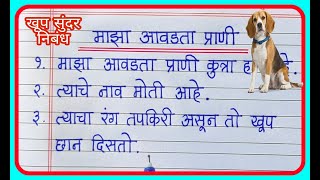 खूप सुंदर
निबंध
माझा आवडता प्राणी
१. माझा आवडता प्राणी कुत्रा ह
२. त्याचे नाव मोती आहे.
३. त्याचा रंग तपकिरी असून तो खूप
छान दिसतो.